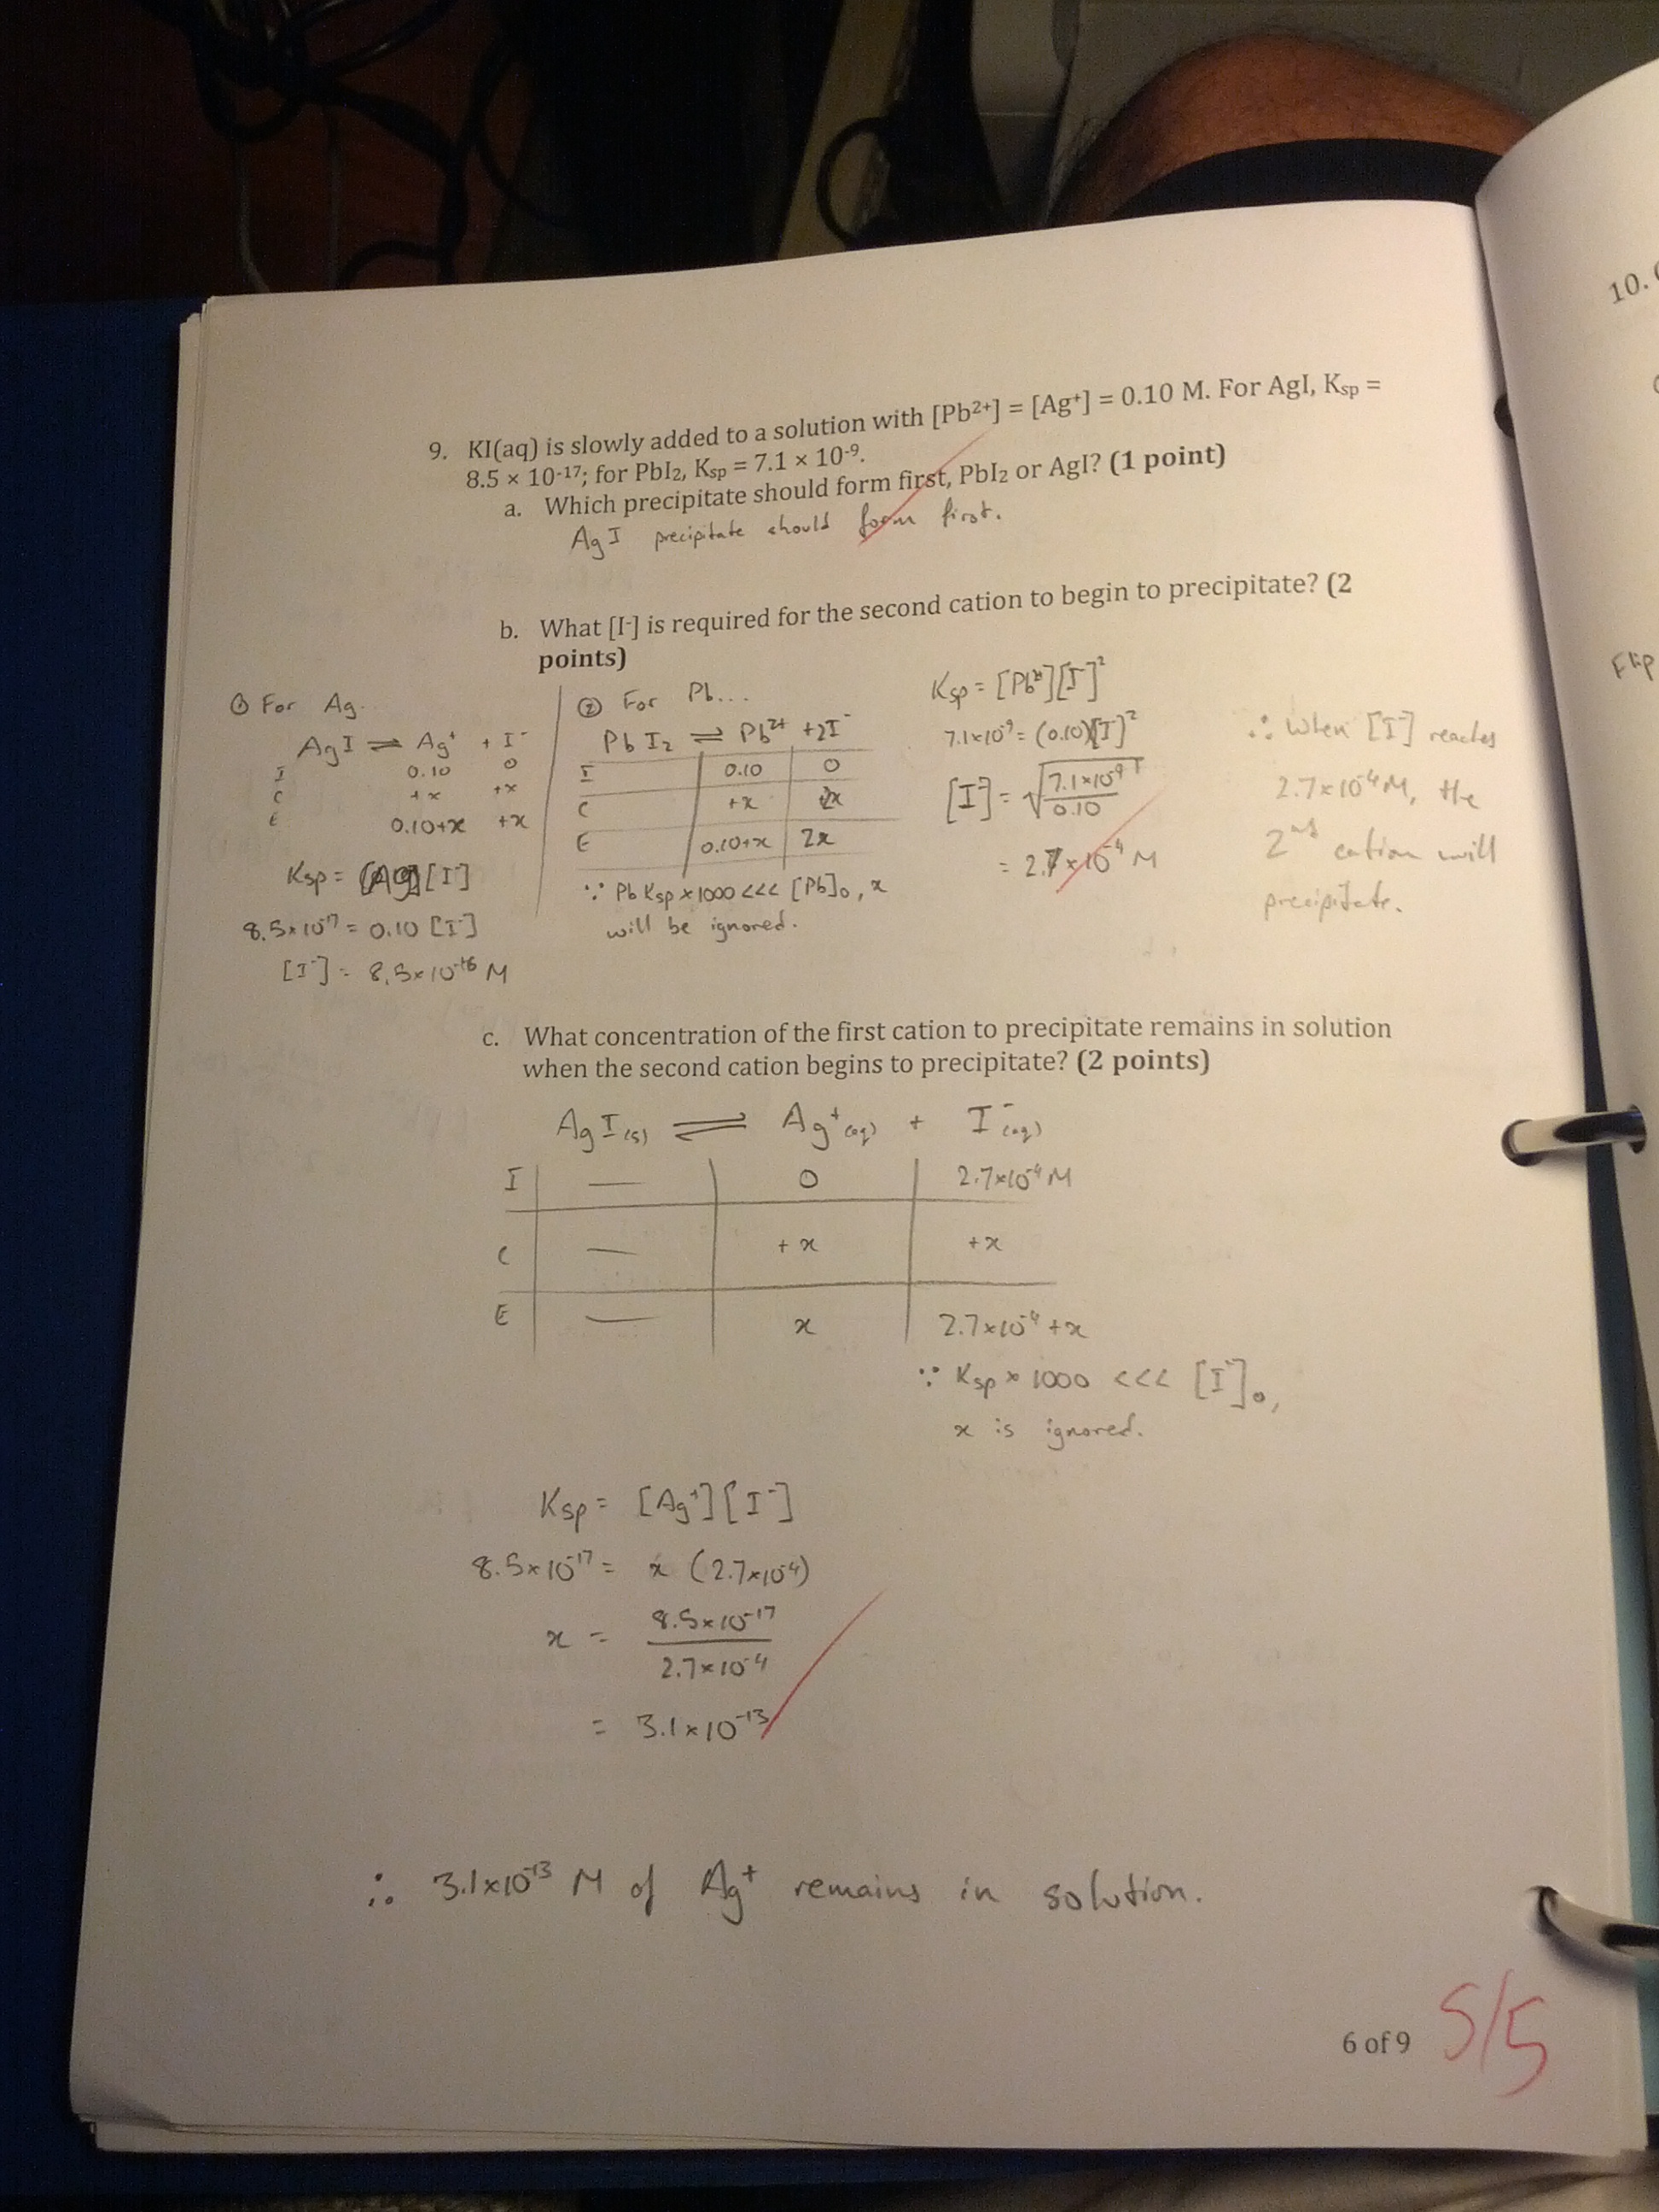 9. KI(aq) is slowly added to a solution with [Pb²⁺] = [Ag⁺] = 0.10 M. For AgI, Ksp =
8.5 × 10⁻¹⁷; for PbI₂, Ksp = 7.1 × 10⁻⁹.
a. Which precipitate should form first, PbI₂ or AgI? (1 point)
AgI precipitate should form first.
b. What [I⁻] is required for the second cation to begin to precipitate? (2
points)
① For Ag.
AgI ⇌ Ag⁺ + I⁻
I 0.10 0
C +x +x
E 0.10+x +x
Ksp = [Ag][I⁻]
8.5×10⁻¹⁷ = 0.10 [I⁻]
[I⁻] = 8.5×10⁻¹⁶ M
② For Pb...
PbI₂ ⇌ Pb²⁺ + 2I⁻
I 0.10 0
C +x 2x
E 0.10+x 2x
∵ Pb Ksp × 1000 <<< [Pb]₀, x
will be ignored.
Ksp = [Pb²⁺][I⁻]²
7.1×10⁻⁹ = (0.10)[I⁻]²
[I⁻] = √7.1×10⁻⁹/0.10
= 2.7×10⁻⁴ M
∴ When [I⁻] reaches
2.7×10⁻⁴ M, the
2nd cation will
precipitate.
c. What concentration of the first cation to precipitate remains in solution
when the second cation begins to precipitate? (2 points)
AgI(s) ⇌ Ag⁺(aq) + I⁻(aq)
I — 0 2.7×10⁻⁴ M
C — +x +x
E — x 2.7×10⁻⁴ +x
∵ Ksp × 1000 <<< [I⁻]₀,
x is ignored.
Ksp = [Ag⁺][I⁻]
8.5×10⁻¹⁷ = x (2.7×10⁻⁴)
x = 8.5×10⁻¹⁷
2.7×10⁻⁴
= 3.1×10⁻¹³
∴ 3.1×10⁻¹³ M of Ag⁺ remains in solution.
6 of 9
5/5
10.
Flip